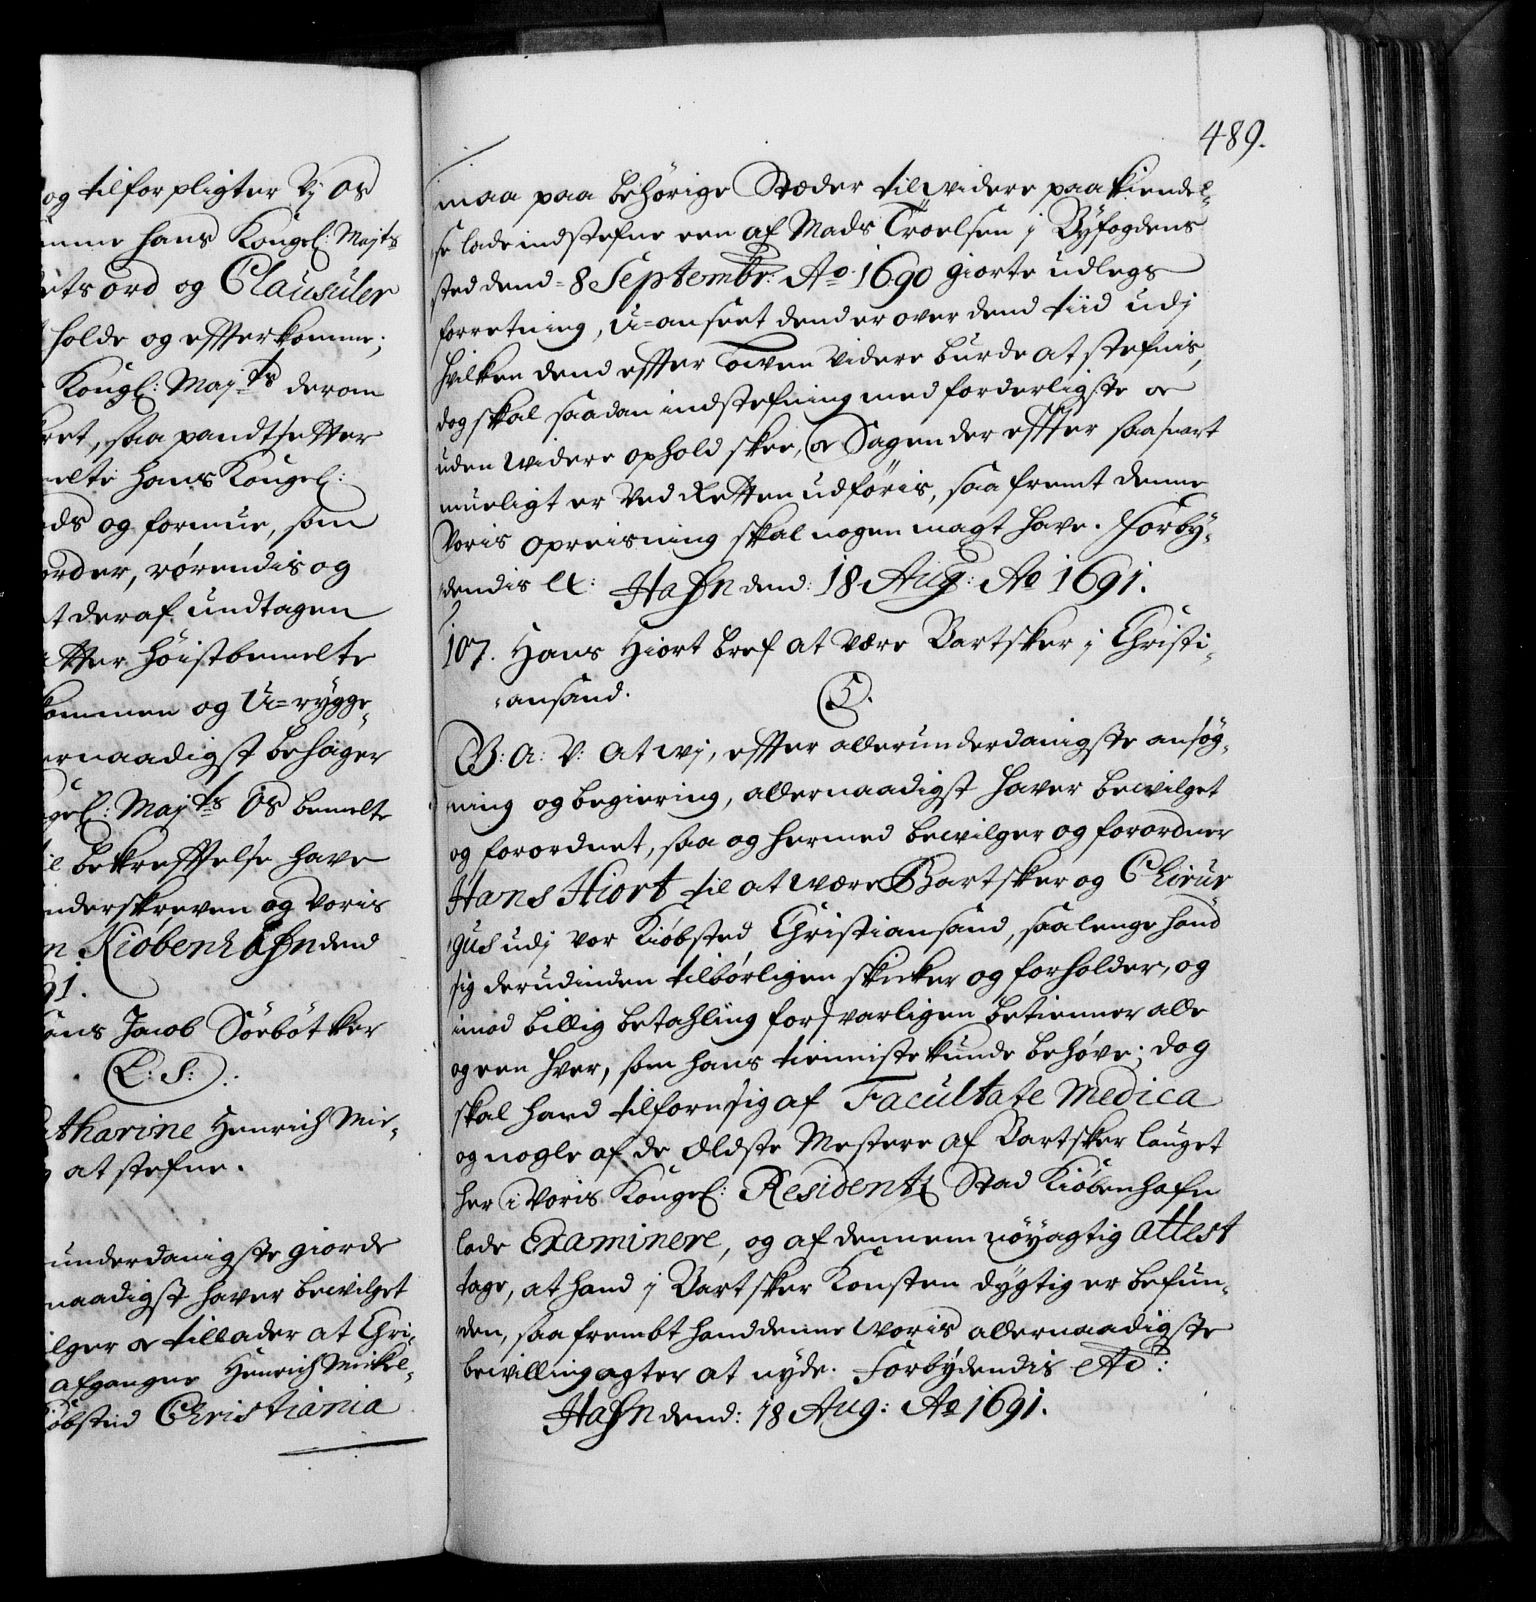 og tilforpligter Vj os
hans Kongel: Majts
ord og Clausuler
holde og effterkomme;
Kongl: Majts derom
saa pandtsetter
hans Kongel:
og formue, som
rörendis og
deraf undtagen
höistbemelte
og U=rygge,
behager
Majts Os bemelte
bekrefftelse have
og Voris
Kiøbenhafn dend
91.
Jacob Sörbötker
L: S:
Henrich Mic,
at stefne.
underdanigste giorde
haver bewilget
og tillader at Chri,
afgangne Henrich Mickel,
Christiania
489.
maa paa behörige Stæder til widere paakiendel,
se lade indstefne een af Mads Troelsen j Byfogdens
sted dend 8 Septembr: Ao 1690 giorte udlegs
forretning, U=anseet dend er over dend tiid udj
hvilken dend effter Lowen videre burde at stefnis,
dog skal saadan indstefning med forderligste og
uden widere ophold skee, og Sagen der effter saasnart
mueligt er ved Retten udföris, saafremt denne
Voris opreisning skal nogen magt have. Forby,
dendis etc: Hafn dend: 18 Aug: Ao 1691.
107. Hans Hiort bref at være Bartsker j Christi,
ansand.
5.
G: A: V: at wj, effter allerunderdanigste ansög,
ning og begiering, allernaadigst haver bewilget
og forordnet, saa og hermed bewilger og forordner
Hans Hiort til at være Bartsker og Chirur
gus udj vor Kiöbsted Christiansand, saalenge hand
sig derudinden tilbörligen skicker og forholder, og
imod billig betahling forsvarligen betienner alle
og een hver, som hans tienniste kunde behöve; dog
skal hand tilforn sig af Facultate Medica
og nogle af de Ældste Mestere af Bartsker lauget
her i Voris Kongel: Residentz Stad Kiöbenhafn
lade Examinere, og af dennem nöyagtig attest
tage, at hand j Bartsker Konsten dygtig er befun,
den, saafrembt hand denne Woris allernaadigste
bewilling agter at nyde. Forbydendis etc:
Hafn dend: 18 Aug: Ao 1691.